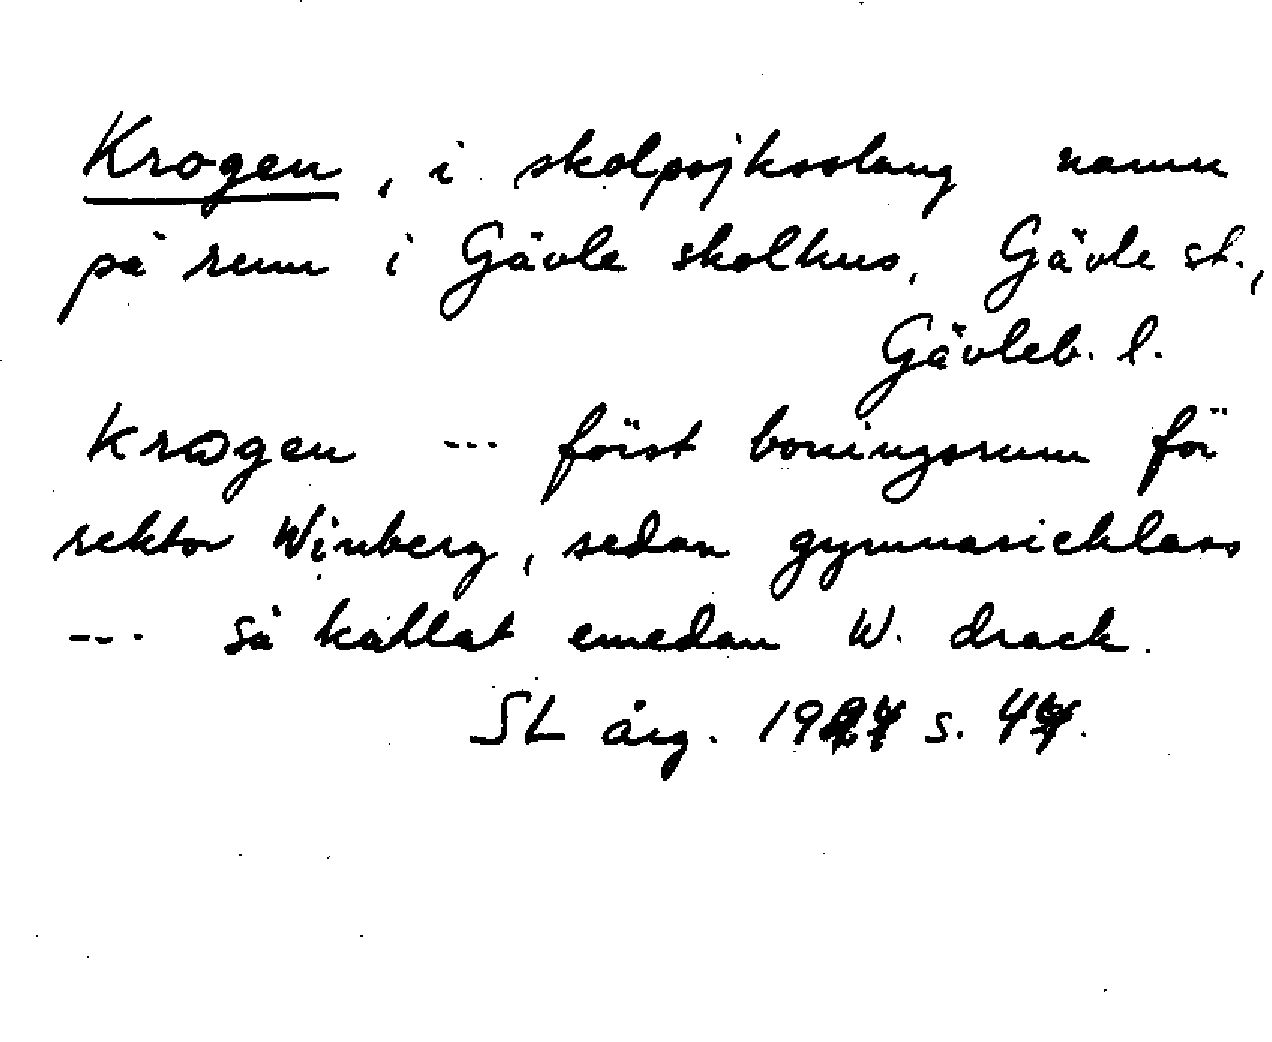 Krogen, i skolpojksslang namn
på rum i Gävle skolhus, Gävle st.,
Gävleb. l.
Krogen --- först boningsrum för
rektor Winberg, sedan gymnasieklass
--- så kallat emedan W. drack.
SL årg. s.